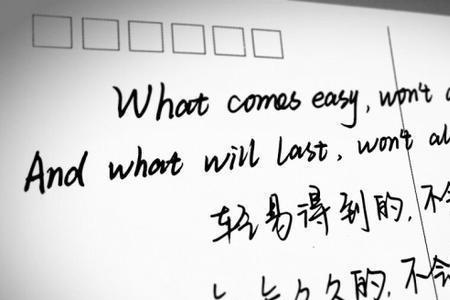 What comes easy, won't
And what will last, won't
轻易得到的, 不
久久的, 不会